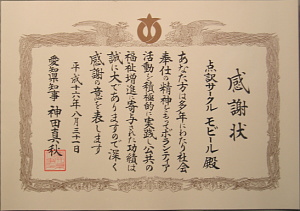 感謝状
点訳サークル モビール殿
あなた方は多年にわたり社会
奉仕の精神をもつてボランティア
活動を積極的に実践し公共の
福祉増進に寄与された功績は
誠に大でありますので深く
感謝の意を表します
平成十六年八月三十一日
愛知県知事 神田真秋